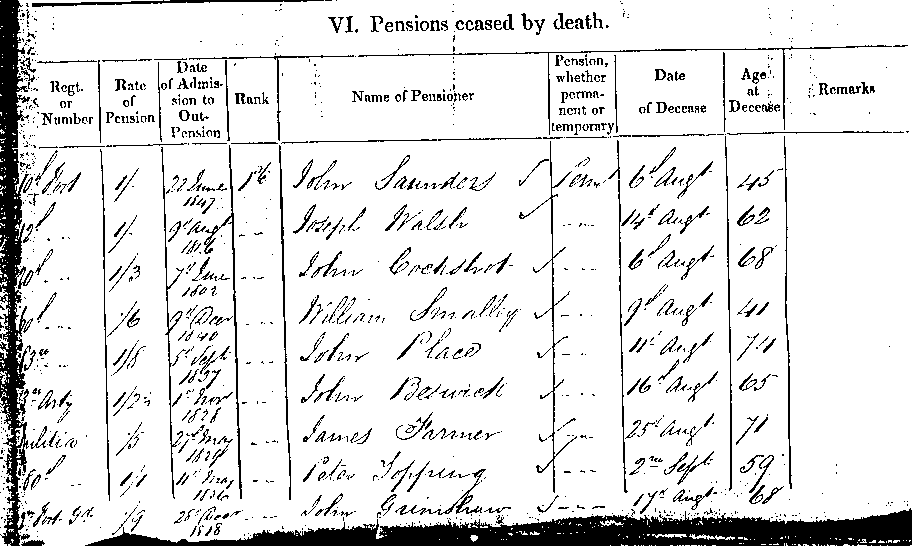 VI. Pensions ceased by death.
Regt. or Number Rate of Pension Date of Admission to Out-Pension Rank Name of Pensioner Pension, whether permanent or temporary Date of Decease Age at Decease Remarks
Foot 1/. 22 June 1847 John Saunders Permt 6d Augt 45
1/. 9d Augt Joseph Walsh 14d Augt 62
1/3 7d June 1802 John Cockshot 6d Augt 68
/6 9d Decr 1840 William Smalley 9d Augt 41
1/8 5d Sept 1837 John Place 11d Augt 74
Arty 1st Nov 1828 John Beswick 16d Augt 65
/5 27d May James Farmer 25d Augt 71
1/1 11d May 1836 Peter Topping 2nd Sept 59
/9 Decr 1818 John Grimshaw 17d Augt 68